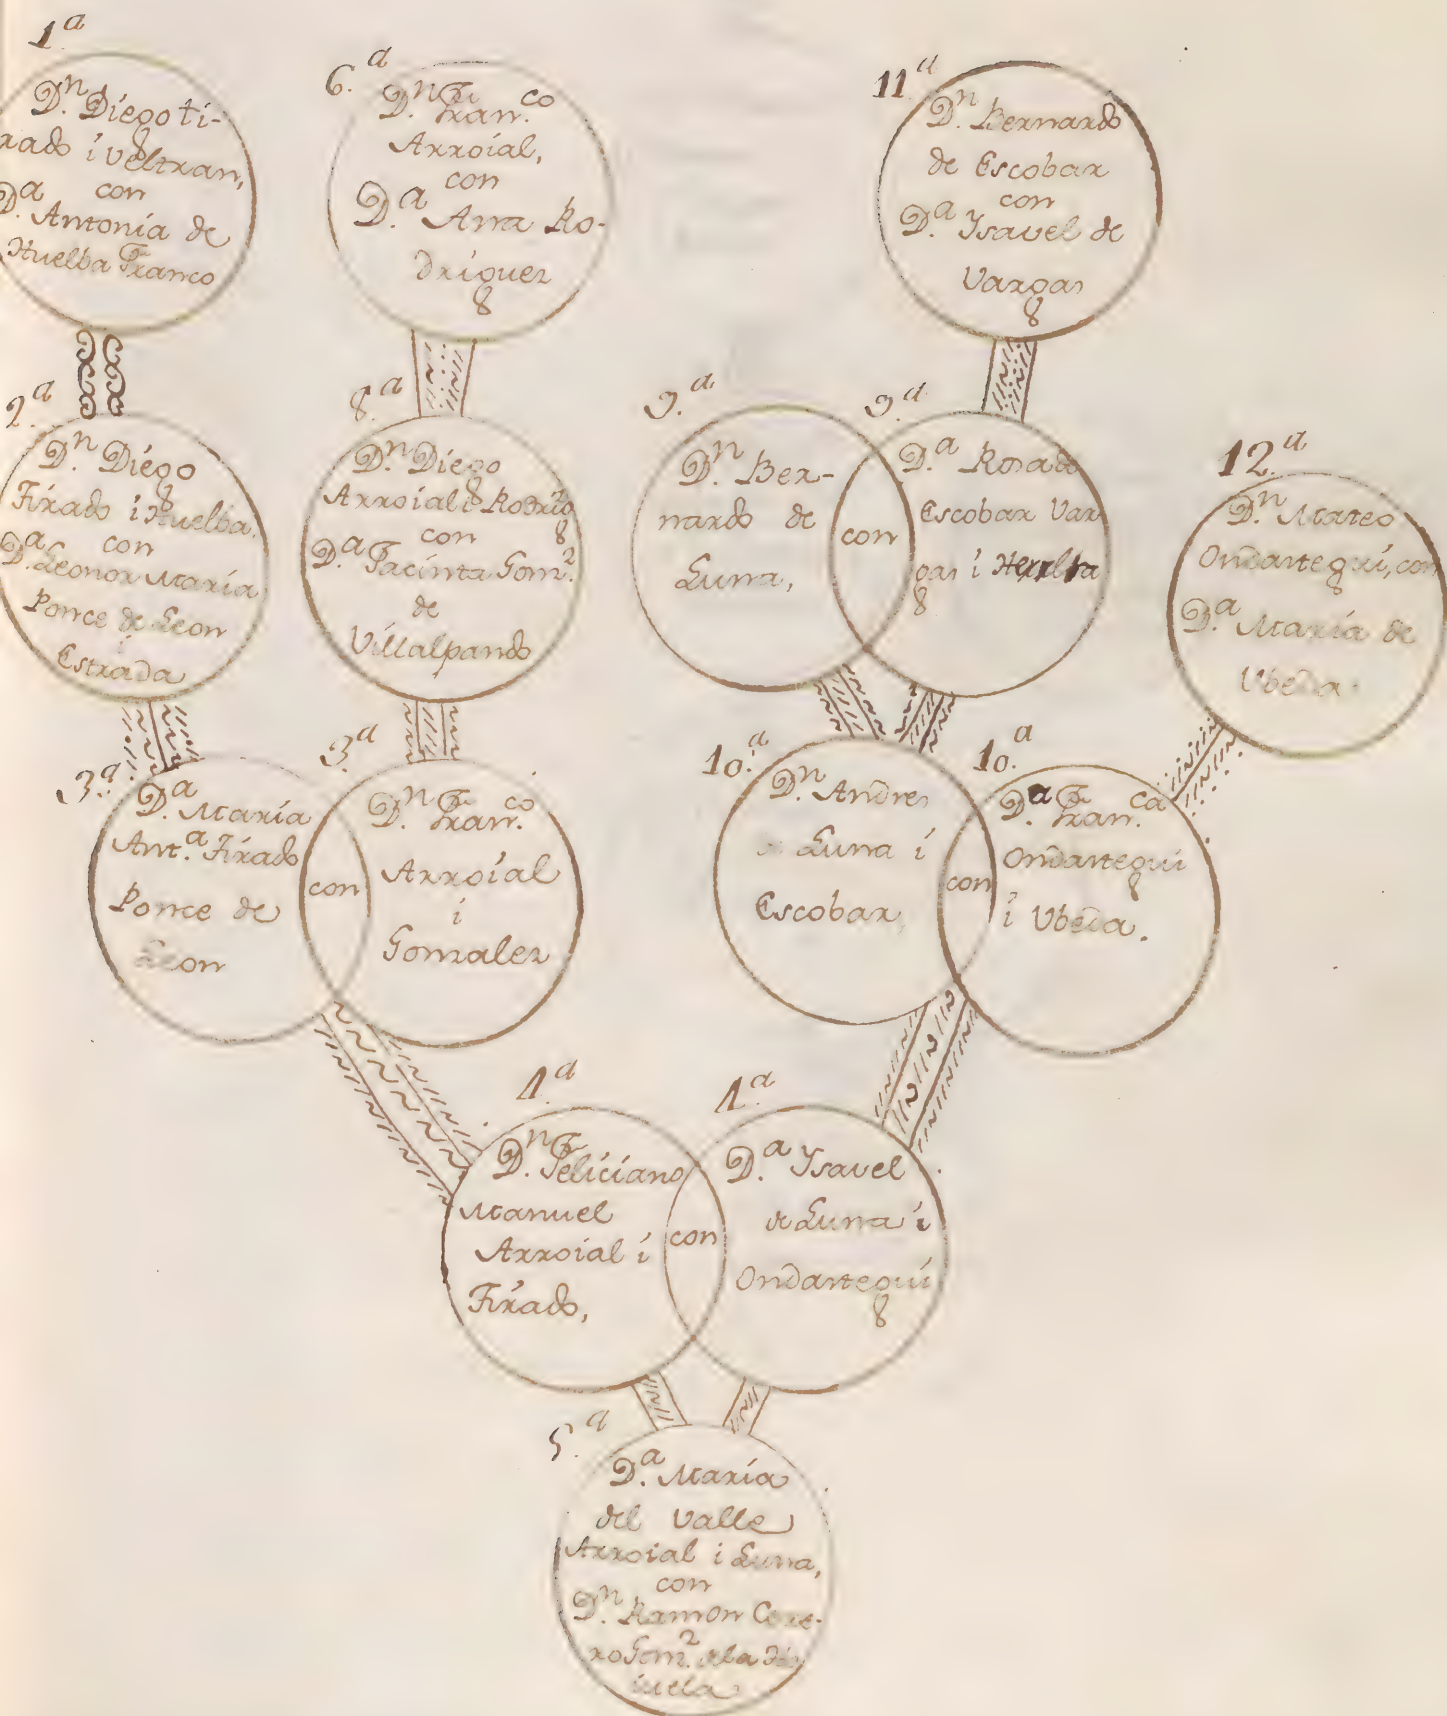 1.ª
D.ⁿ Diego ti-
rado i Veltran,
con
D.ª Antonia de
Huelba Franco
6.ª
D.ⁿ Fran.co
Arroial,
con
D.ª Ana Ro-
driguez
11.ª
D.ⁿ Bernardo
de Escobar
con
D.ª Ysavel de
Vargas
2.ª
D.ⁿ Diego
Tirado i Huelba.
con
D.ª Leonor Maria
Ponce de Leon
i
Estrada
8.ª
D.ⁿ Diego
Arroial i
con
D.ª Jacinta Gom.z
de
Villalpando
9.ª
D.ⁿ Ber-
nardo de
Luna,
con
9.ª
D.ª Rosa de
Escobar Var
gas i
12.ª
D.ⁿ Mateo
Ondartegui, con
D.ª Maria de
Ubeda.
3.ª
D.ª Maria
Ant.ª Tirado
Ponce de
Leon
con
3.ª
D.ⁿ Fran.co
Arroial
i
Gonzalez
10.ª
D.ⁿ Andres
de Luna i
Escobar,
con
10.ª
D.ª Fran.ca
Ondartegui
i Ubeda.
4.ª
D.ⁿ Feliciano
Manuel
Arroial i
Tirado,
con
4.ª
D.ª Ysavel
de Luna i
Ondartegui
5.ª
D.ª Maria
del Valle
Arroial i Luna,
con
D.ⁿ Ramon Cere-
ro Gom.z de la